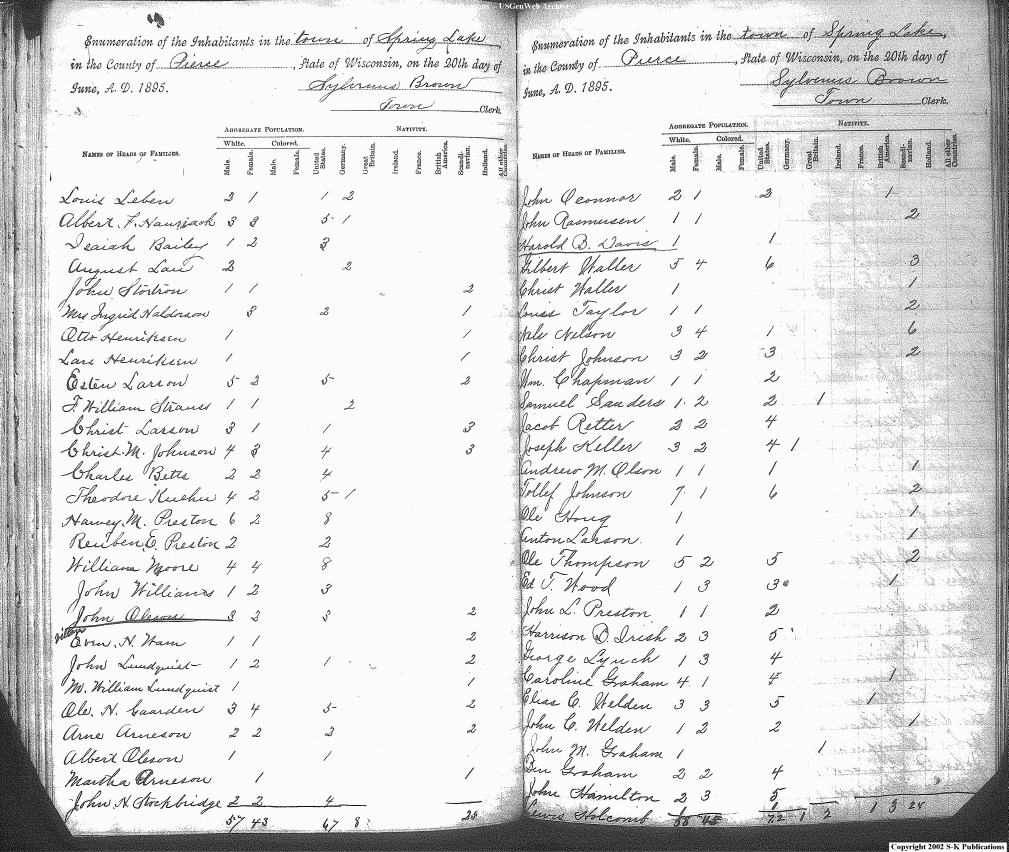 USGenWeb Archives
Enumeration of the Inhabitants in the town of Spring Lake,
in the County of Pierce, State of Wisconsin, on the 20th day of
June, A. D. 1895. Sylvenus Brown
Town Clerk.
AGGREGATE POPULATION. NATIVITY.
White. Colored.
NAMES OF HEADS OF FAMILIES. Male. Female. Male. Female. United States. Germany. Great Britain. Ireland. France. British America. Scandinavian. Holland. All other Countries.
Louis Leben 2 1 1 2
Albert F. 3 3 5 1
Isaiah Bailey 1 2 3
August Lau 2 2
John 1 1 2
Mrs Ingrid Haldorson 3 2 1
Otto Henriksen 1 1
Lars Henriksen 1 1
Esten Larson 5 2 5 2
F. William Strauss 1 1 2
Christ Larson 3 1 1 3
Christ. M. Johnson 4 3 4 3
Charles Betts 2 2 4
Theodore Kuehn 4 2 5 1
Harvey. M. Preston 6 2 8
Reuben E. Preston 2 2
William Moore 4 4 8
John Williams 1 2 3
John Oleson 3 2 3 2
Even. N. Wam 1 1 2
John Lundquist 1 2 1 2
M. William Lundquist 1 1
Ole. N. Gaarden 3 4 5 2
Arne Arneson 2 2 2 2
Albert Oleson 1 1
Martha Arneson 1 1
John N. Stockbridge 2 2 4
57 43 67 8 25
Enumeration of the Inhabitants in the town of Spring Lake,
in the County of Pierce, State of Wisconsin, on the 20th day of
June, A. D. 1895. Sylvenus Brown
Town Clerk.
AGGREGATE POPULATION. NATIVITY.
White. Colored.
NAMES OF HEADS OF FAMILIES. Male. Female. Male. Female. United States. Germany. Great Britain. Ireland. France. British America. Scandinavian. Holland. All other Countries.
John Oconnor 2 1 2 1
John Rasmusen 1 1 2
Harold B. Davis 1 1
Gilbert Waller 5 4 6 3
Christ Waller 1 1
Louis Taylor 1 1 2
Nels Nelson 3 4 1 6
Christ Johnson 3 2 3 2
Wm. Chapman 1 1 2
Samuel Sanders 1 2 2 1
Jacob Retter 2 2 4
Joseph Keller 3 2 4 1
Andrew M. Olson 1 1 1 1
Tollef Johnson 7 1 6 2
Ole Houg 1 1
Anton Larson 1 1
Ole Thompson 5 2 5 2
Ed T. Wood 1 3 3 1
John L. Preston 1 1 2
Harrison D. Irish 2 3 5
George Lynch 1 3 4
Caroline Graham 4 1 4 1
Elias C. Welden 3 3 5 1
John C. Welden 1 2 2 1
John M. Graham 1 1
Ben Graham 2 2 4
John Hamilton 2 3 5
Lewis Holcomb 1
58 45 72 1 2 1 3 24
Copyright 2002 S-K Publications